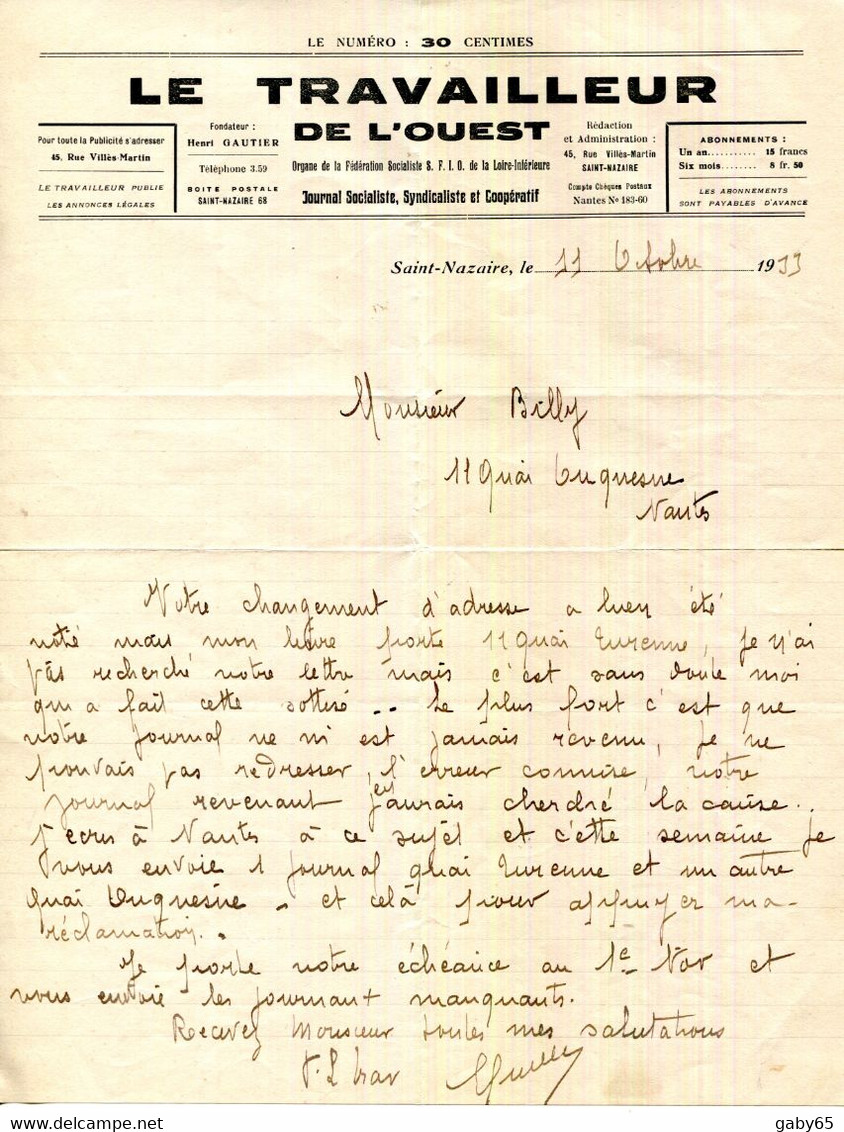 LE NUMÉRO : 30 CENTIMES
LE TRAVAILLEUR
DE L'OUEST
Organe de la Fédération Socialiste S. F. I. O. de la Loire-Inférieure
Journal Socialiste, Syndicaliste et Coopératif
Pour toute la Publicité s'adresser
45, Rue Villès-Martin
LE TRAVAILLEUR PUBLIE
LES ANNONCES LÉGALES
Fondateur :
Henri GAUTIER
Téléphone 3.59
BOITE POSTALE
SAINT-NAZAIRE 68
Rédaction
et Administration :
45, Rue Villès-Martin
SAINT-NAZAIRE
Compte Chèques Postaux
Nantes No 183-60
ABONNEMENTS :
Un an........... 15 francs
Six mois........ 8 fr. 50
LES ABONNEMENTS
SONT PAYABLES D'AVANCE
Saint-Nazaire, le 11 Octobre 1933
Monsieur Billy
11 Quai Duquesne
Nantes
Votre changement d'adresse a bien été
noté mais mon livre porte 11 quai Turenne, je n'ai
pas recherché votre lettre mais c'est sans doute moi
qui a fait cette sottise .. Le plus fort c'est que
votre journal ne m'est jamais revenu, je ne
pouvais pas redresser l'erreur commise, votre
journal revenant j'en aurais cherché la cause..
J'écris à Nantes à ce sujet et cette semaine je
vous envoie 1 journal quai Turenne et un autre
quai Duquesne - et celà pour appuyer ma
réclamation..
Je porte votre échéance au 1e Nov et
vous envoie les journaux manquants.
Recevez Monsieur toutes mes salutations
P. L Trav
gaby65